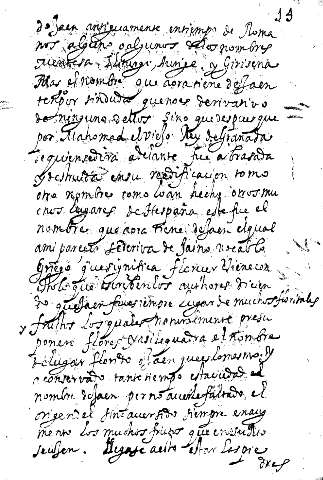 19
do Jaen antiguamente en tiempo de Roma
nos alguno o algunos de los nombres
y Girisena
Mas el nombre que aora tiene de Jaen
tengo por sin duda que no es derivativo
de ninguno dellos sino que despues que
por Mahomad el viejo Rey de Granada
se quien se dira adelante fue abrasada
y destruida en su redificacion tomo
otro nombre como lo an hecho otros mu
chos lugares de Hespaña este fue el
nombre que aora tiene de Jaen el qual
a mi parecer se deriva de Jaino vocablo
griego que significa florecer viene con
esto lo que los authores dicien
do que Jaen fue siempre lugar de muchos florestales
y frutos los quales naturalmente presu
ponen flores y asi le quadra el nombre
de lugar florido o Jaen que es lo mesmo y
a conservado tanto tiempo esta ciudad el
nombre de Jaen por no averle faltado el
origen del sino aver sido siempre en aug
mento los muchos frutos que en su sitio
se usen. Llegase a esto estar los pie
dres